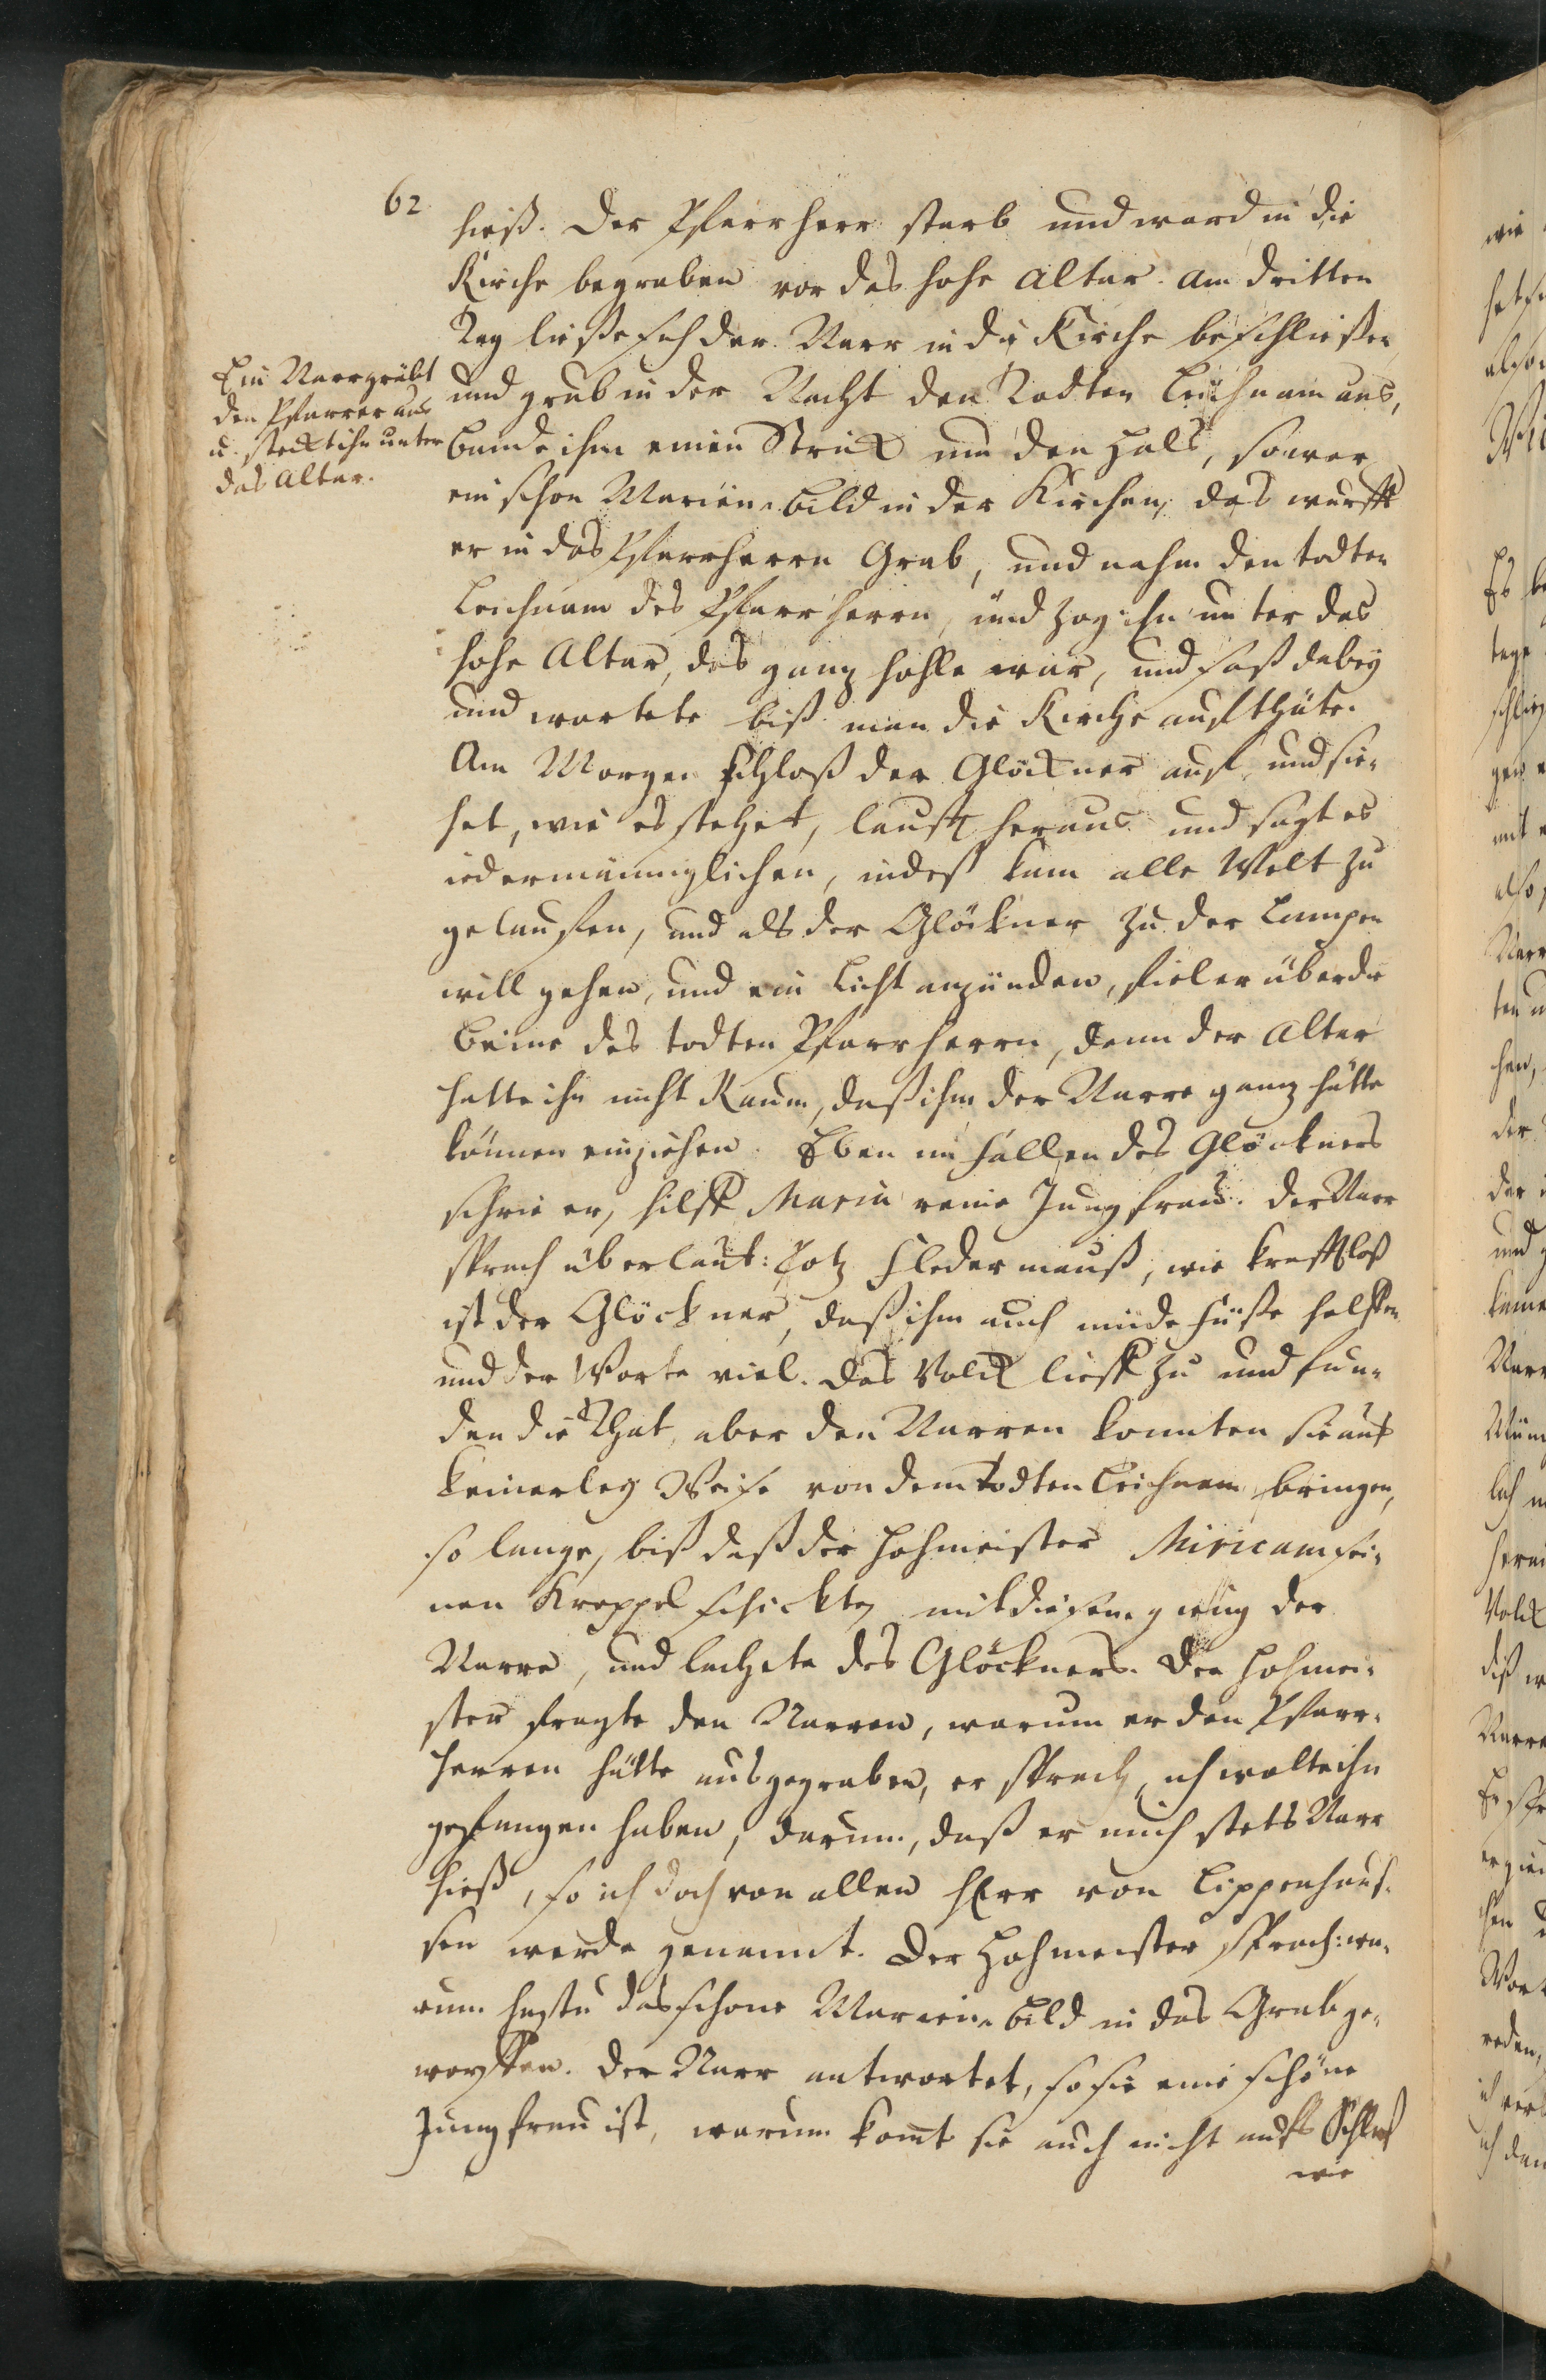 62
hieß. Der Pfarrherr starb und ward in die
Kirche begraben vor das hohe Altar. Am dritten
Tag ließe sich der Narr in die Kirche beschließen
und grub in der Nacht den Todten Leichnam aus,
bunde ihm einen Strick um den Halß, so war
ein schon Marien-bild in der Kirchen, das wurff
er in das Pfarrherrn Grab, und nahm den todten
Leichnam des Pfarrherrn, und zog ihn unter das
hohe Altar, das ganz hohle war, und saß dabey
und wartete biß man die Kirche aufthäte.
Am Morgen schloß der Glöckner auf und sie-
het, wie es stehet, laufft heraus und sagt es
iedermänniglichen, indeß kam alle Welt zu
gelauffen, und als der Glöckner zu der Lampen
will gehen, und ein Licht anzünden, fiel er über die
Beine des todten Pfarrherrn, denn der Altar
hatte ihn nicht Raum, daß ihm der Narre ganz hätte
können einziehen. Eben im fallen des Glöckners
schrie er, hilff Maria reine Jungfrau. Der Narr
sprach überlaut: Potz Fledermauß, wie krafftloß
ist der Glöckner, daß ihm auch müde Füße helffen
und der Worte viel. Das Volck lieff zu und fun-
den die That, aber den Narren konnten sie auf
keinerley Weise von dem todten Leichnam bringen,
so lange, biß daß der Hofmeister Miricam sei-
nen Kreppel schickte, mit diesem gieng der
Narre, und lachete des Glöckners. Der Hofmei-
ster fragte den Narren, warum er den Pfarr-
herren hätte ausgegraben, er sprach, ich wolte ihn
gefangen haben, darum, daß er mich stets Narr
hieß, so ich doch von allen Herr von Lippenhauf-
sen werde genannt. Der Hofmeister sprach: wa-
rum hastu das schone Marien-bild in das Grab ge-
worffen. Der Narr antwortet, so sie eine schöne
Jungfrau ist, warum komt sie auch nicht aufs Schloß
wie
Ein Narr gräbt
den Pfarrer aus
u. steckt ihn unter
das Altar.